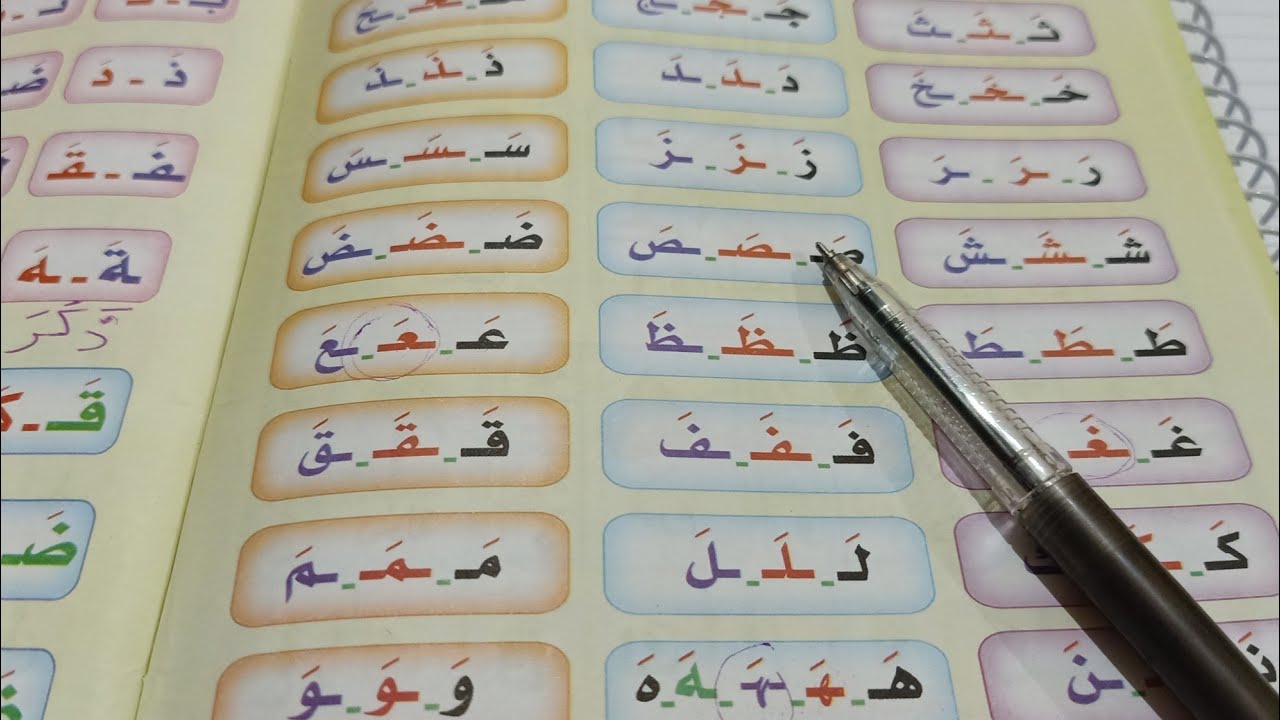 ثَـ - ـثَـ - ـثَ
جَـ - ـجَـ - ـجَ
حَـ - ـحَـ - ـحَ
خَـ - ـخَـ - ـخَ
دَ - ـدَ - ـدَ
ذَ - ـذَ - ـذَ
رَ - ـرَ - ـرَ
زَ - ـزَ - ـزَ
سَـ - ـسَـ - ـسَ
شَـ - ـشَـ - ـشَ
صَـ - ـصَـ - ـصَ
ضَـ - ـضَـ - ـضَ
طَـ - ـطَـ - ـطَ
ظَـ - ـظَـ - ـظَ
عَـ - ـعَـ - ـعَ
غَـ - ـغَـ
فَـ - ـفَـ - ـفَ
قَـ - ـقَـ - ـقَ
كَـ - ـكَـ
لَـ - ـلَـ - ـلَ
مَـ - ـمَـ - ـمَ
ـنَ
هَـ - ـهَـ - ـهَـ - ـهَ - هَ
وَ - ـوَ - ـوَ
ذَ - دَ
ـفَـ - ـقَـ
ـةَ - ـهَ
قَا
ضَـ